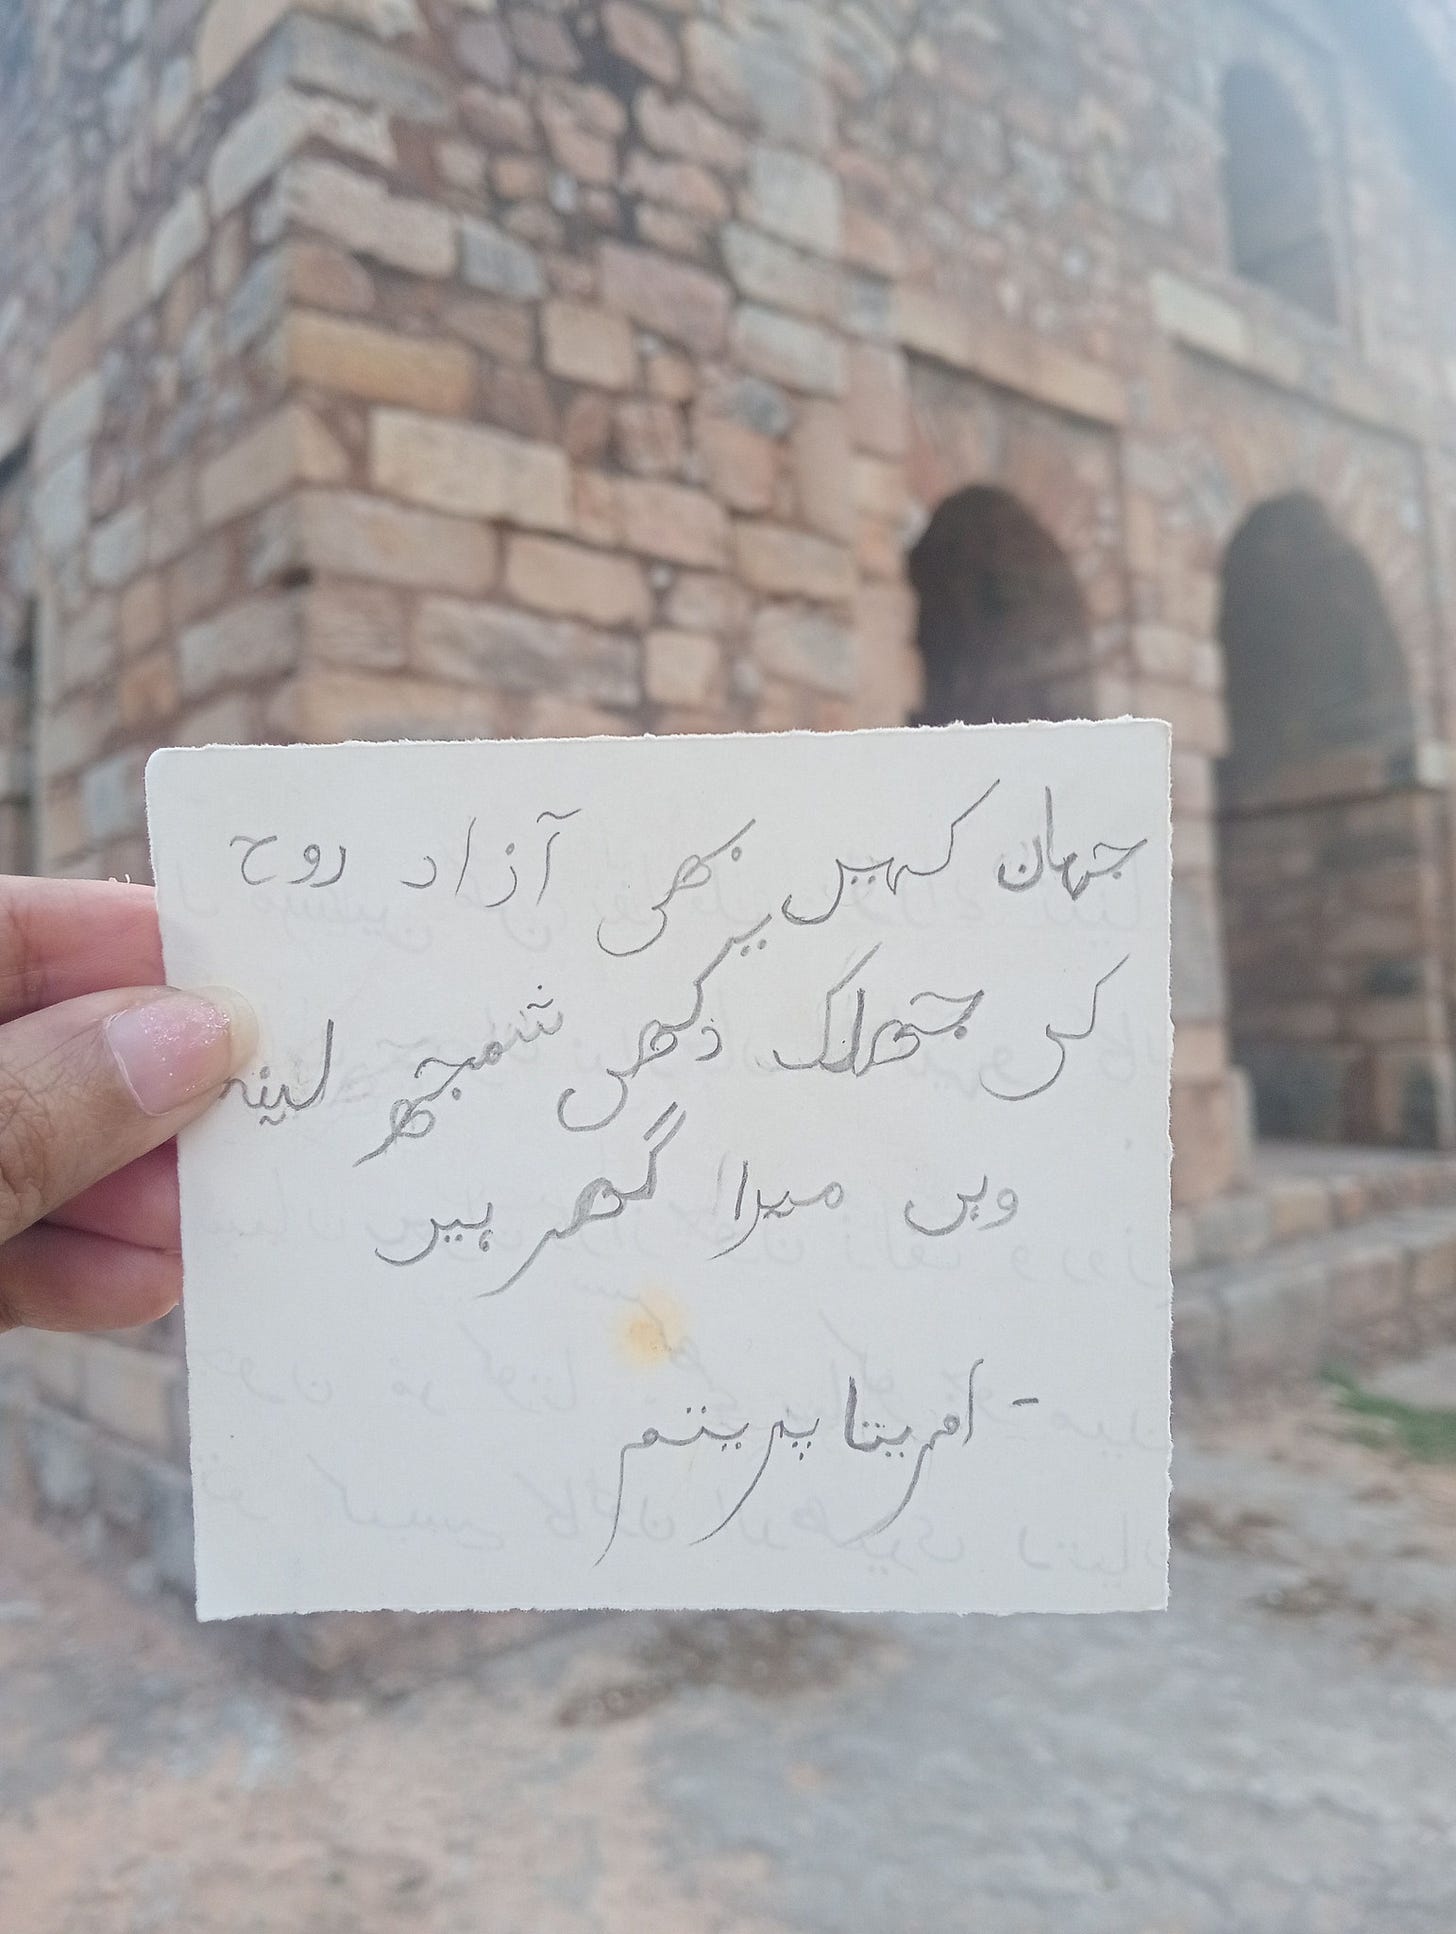 جہان کہیں بھی آزاد روح
کی جھلک دکھیں شمجھ لینہ
ویں میرا گھر ہیں
- امریتا پریتم